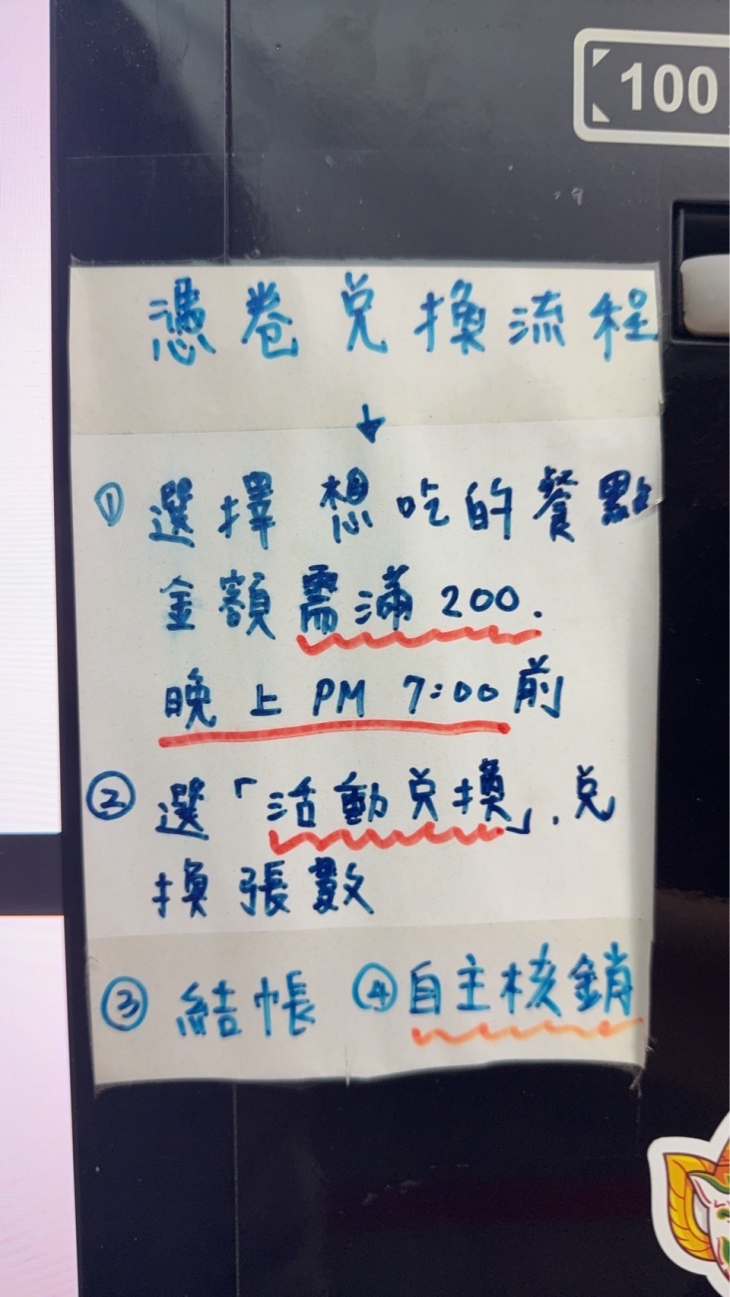 100
憑卷兌換流程
↓
① 選擇想吃的餐點
金額需滿200.
晚上PM 7:00前
② 選「活動兌換」, 兌
換張數
③ 結帳 ④自主核銷